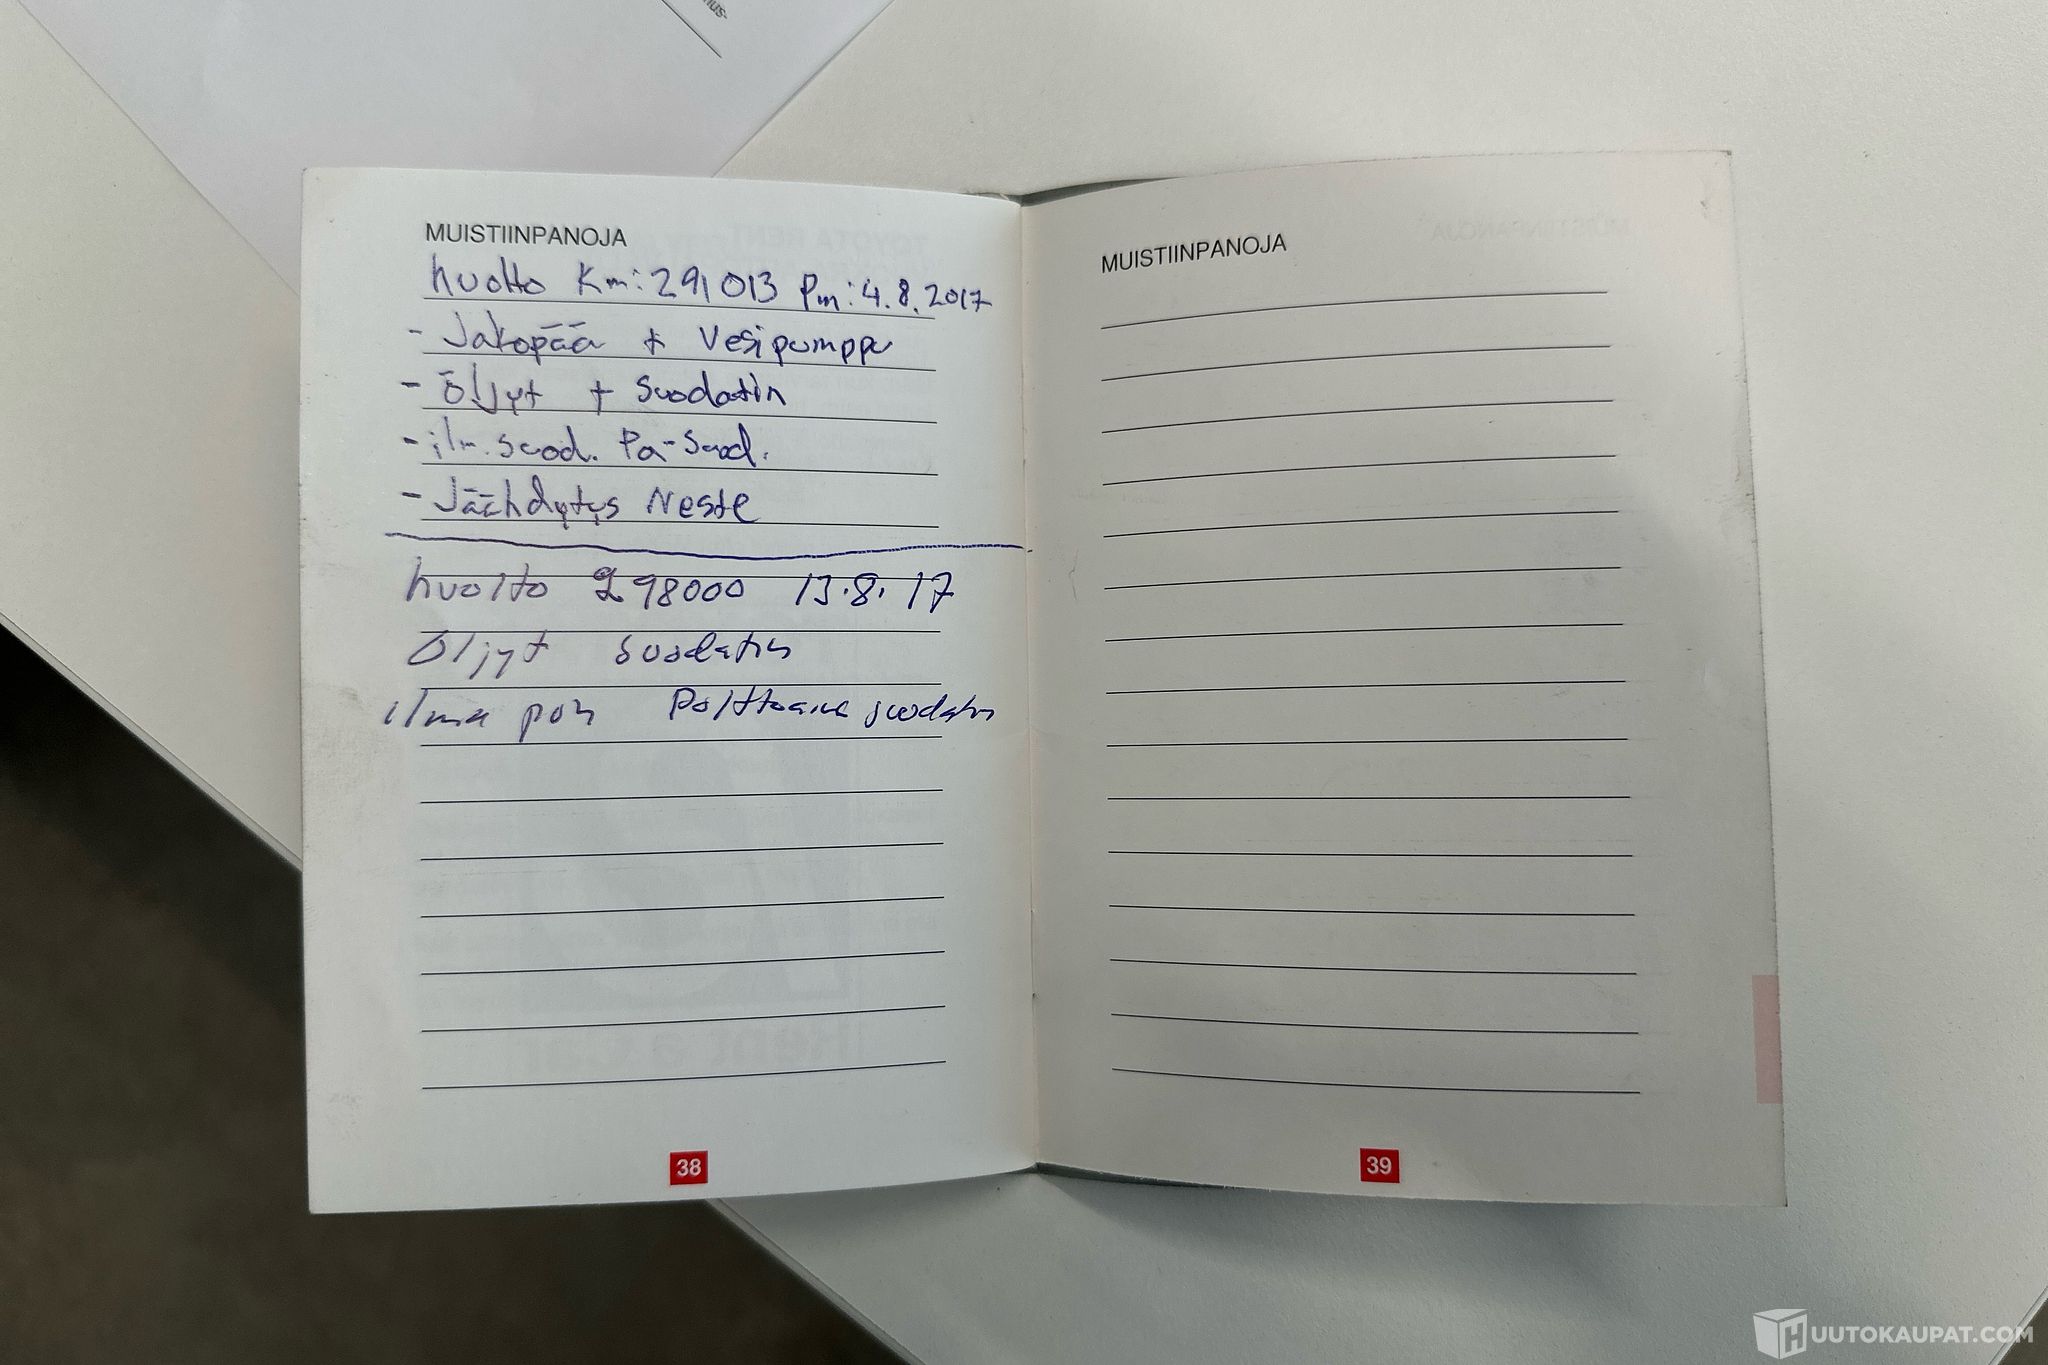 MUISTIINPANOJA
huolto Km: 291 013 Pm: 4.8.2017
- Jakopää + Vesipumppu
- Öljyt + Suodatin
- ilm. suod. Pa-Suod.
- Jäähdytys Neste
huolto 298000 13.8.17
Öljyt suodatin
ilma Polttoaine suodatin
38
MUISTIINPANOJA
39
HUUTOKAUPAT.COM